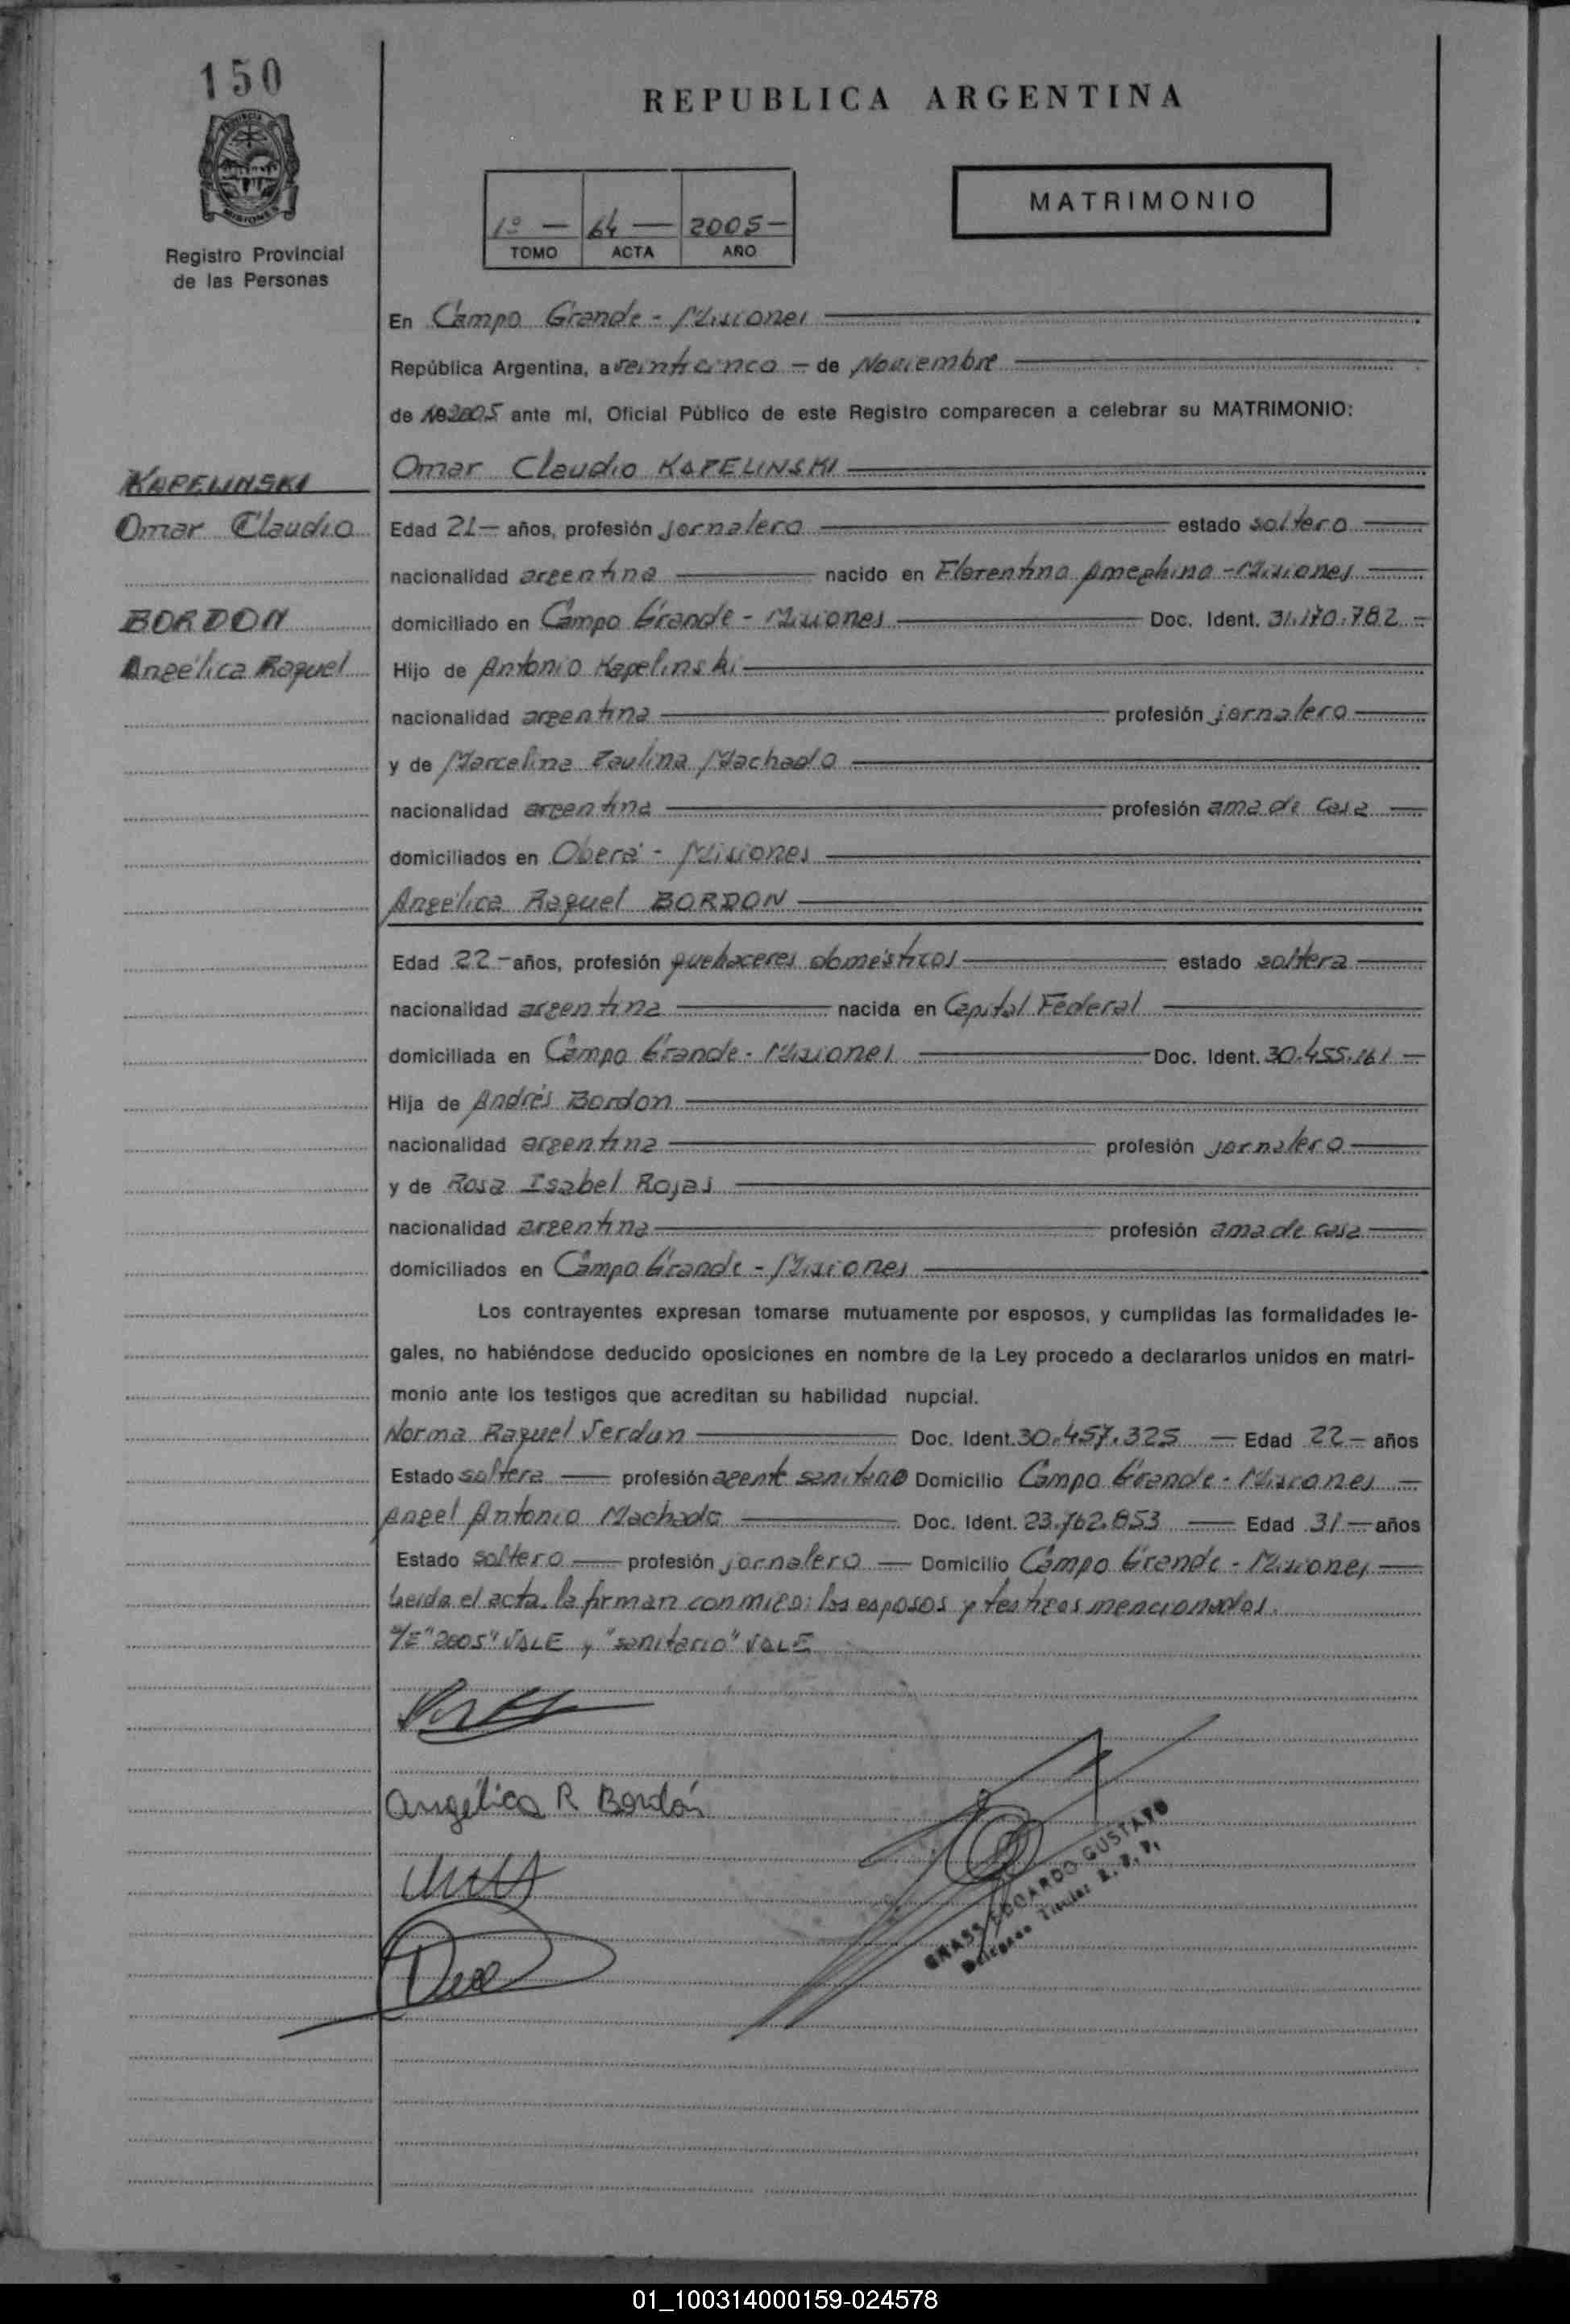 150
PROVINCIA
MISIONES
Registro Provincial
de las Personas
REPUBLICA ARGENTINA
1º — 64 — 2005 —
TOMO ACTA AÑO
MATRIMONIO
En Campo Grande - Misiones
República Argentina, a veinticinco — de Noviembre
de 2005 ante mí, Oficial Público de este Registro comparecen a celebrar su MATRIMONIO:
KAPELINSKI
Omar Claudio
BORDON
Angélica Raquel
Omar Claudio KAPELINSKI
Edad 21 — años, profesión jornalero estado soltero
nacionalidad argentina nacido en Florentino Ameghino - Misiones
domiciliado en Campo Grande - Misiones Doc. Ident. 31.170.782 —
Hijo de Antonio Kapelinski
nacionalidad argentina profesión jornalero
y de Marcelina Paulina Machado
nacionalidad argentina profesión ama de casa
domiciliados en Oberá - Misiones
Angélica Raquel BORDON
Edad 22 — años, profesión quehaceres domésticos estado soltera
nacionalidad argentina nacida en Capital Federal
domiciliada en Campo Grande - Misiones Doc. Ident. 30.455.161 —
Hija de Andrés Bordon
nacionalidad argentina profesión jornalero
y de Rosa Isabel Rojas
nacionalidad argentina profesión ama de casa
domiciliados en Campo Grande - Misiones
Los contrayentes expresan tomarse mutuamente por esposos, y cumplidas las formalidades le-
gales, no habiéndose deducido oposiciones en nombre de la Ley procedo a declararlos unidos en matri-
monio ante los testigos que acreditan su habilidad nupcial.
Norma Raquel Verdun Doc. Ident. 30.457.325 — Edad 22 — años
Estado soltera — profesión agente sanitario Domicilio Campo Grande - Misiones —
Angel Antonio Machado Doc. Ident. 23.762.853 — Edad 31 — años
Estado soltero — profesión jornalero — Domicilio Campo Grande - Misiones —
Leída el acta, la firman conmigo: los esposos y testigos mencionados.
S/E "2005" VALE y "sanitario" VALE
Angélica R Bordón
GRASS EDUARDO GUSTAVO
Delegado Titular R. P. P.
01_100314000159-024578